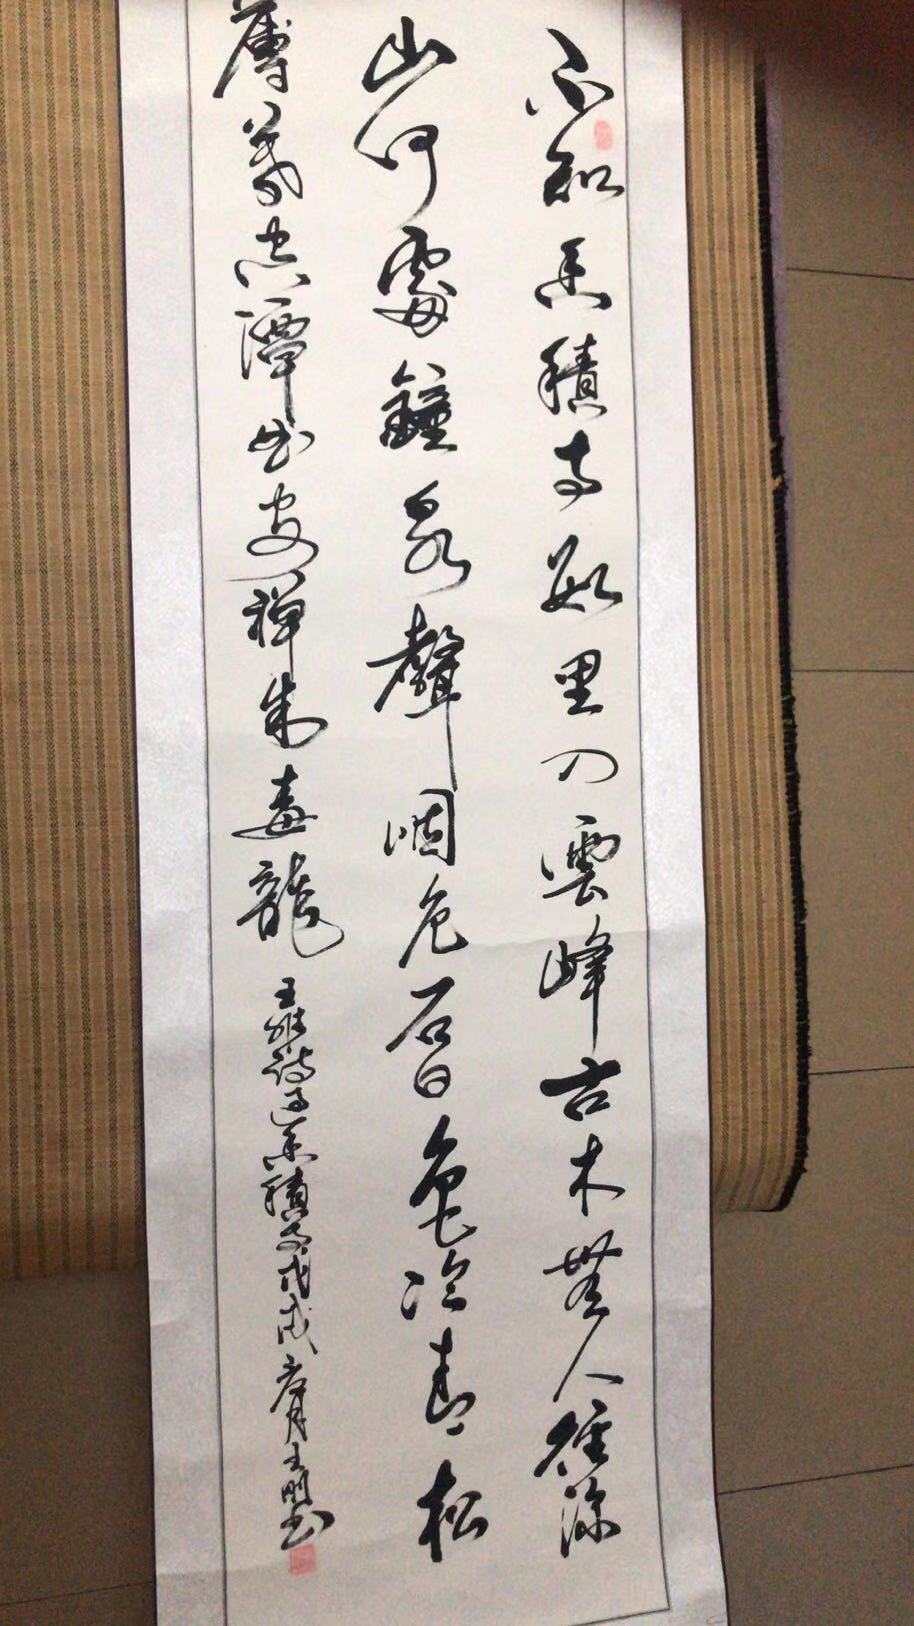 不知香積寺數里入雲峰古木無人徑深
山何處鐘泉聲咽危石日色冷青松
薄暮空潭曲安禪制毒龍
王維詩過香積寺戊戌月王明书